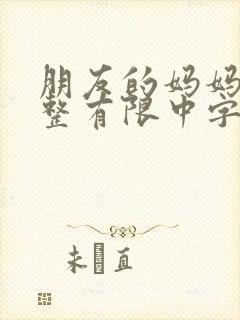 朋友的妈妈
整有限中字
未 直